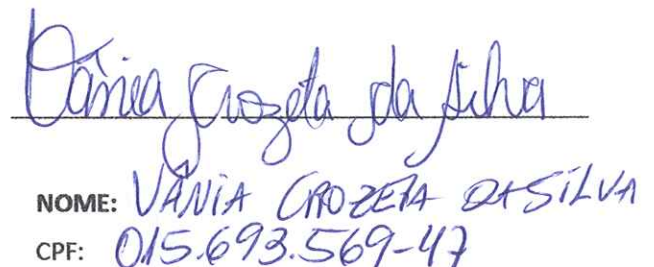 Vânia Crozeta da Silva
NOME: VÂNIA CROZETA DA SILVA
CPF: 015.693.569-47